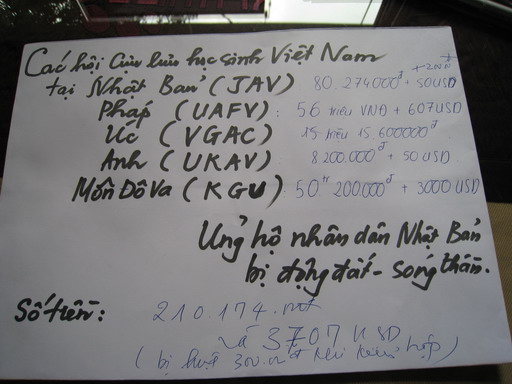 Các hội Cựu lưu học sinh Việt Nam
tại Nhật Bản (JAV) 80.274.000đ + 50USD
Pháp (UAFV): 56 triệu VNĐ + 607USD
Úc (VGAC) triệu 15.600000đ
Anh (UKAV) 8.200.000đ + 50 USD
Môn Đô Va (KGU): 50tr 200.000đ + 3000 USD
Ủng hộ nhân dân Nhật Bản
bị động đất - sóng thần.
Số tiền: 210.174.
và 3707 USD
(bị hụt 300. khi kiểm hộp)